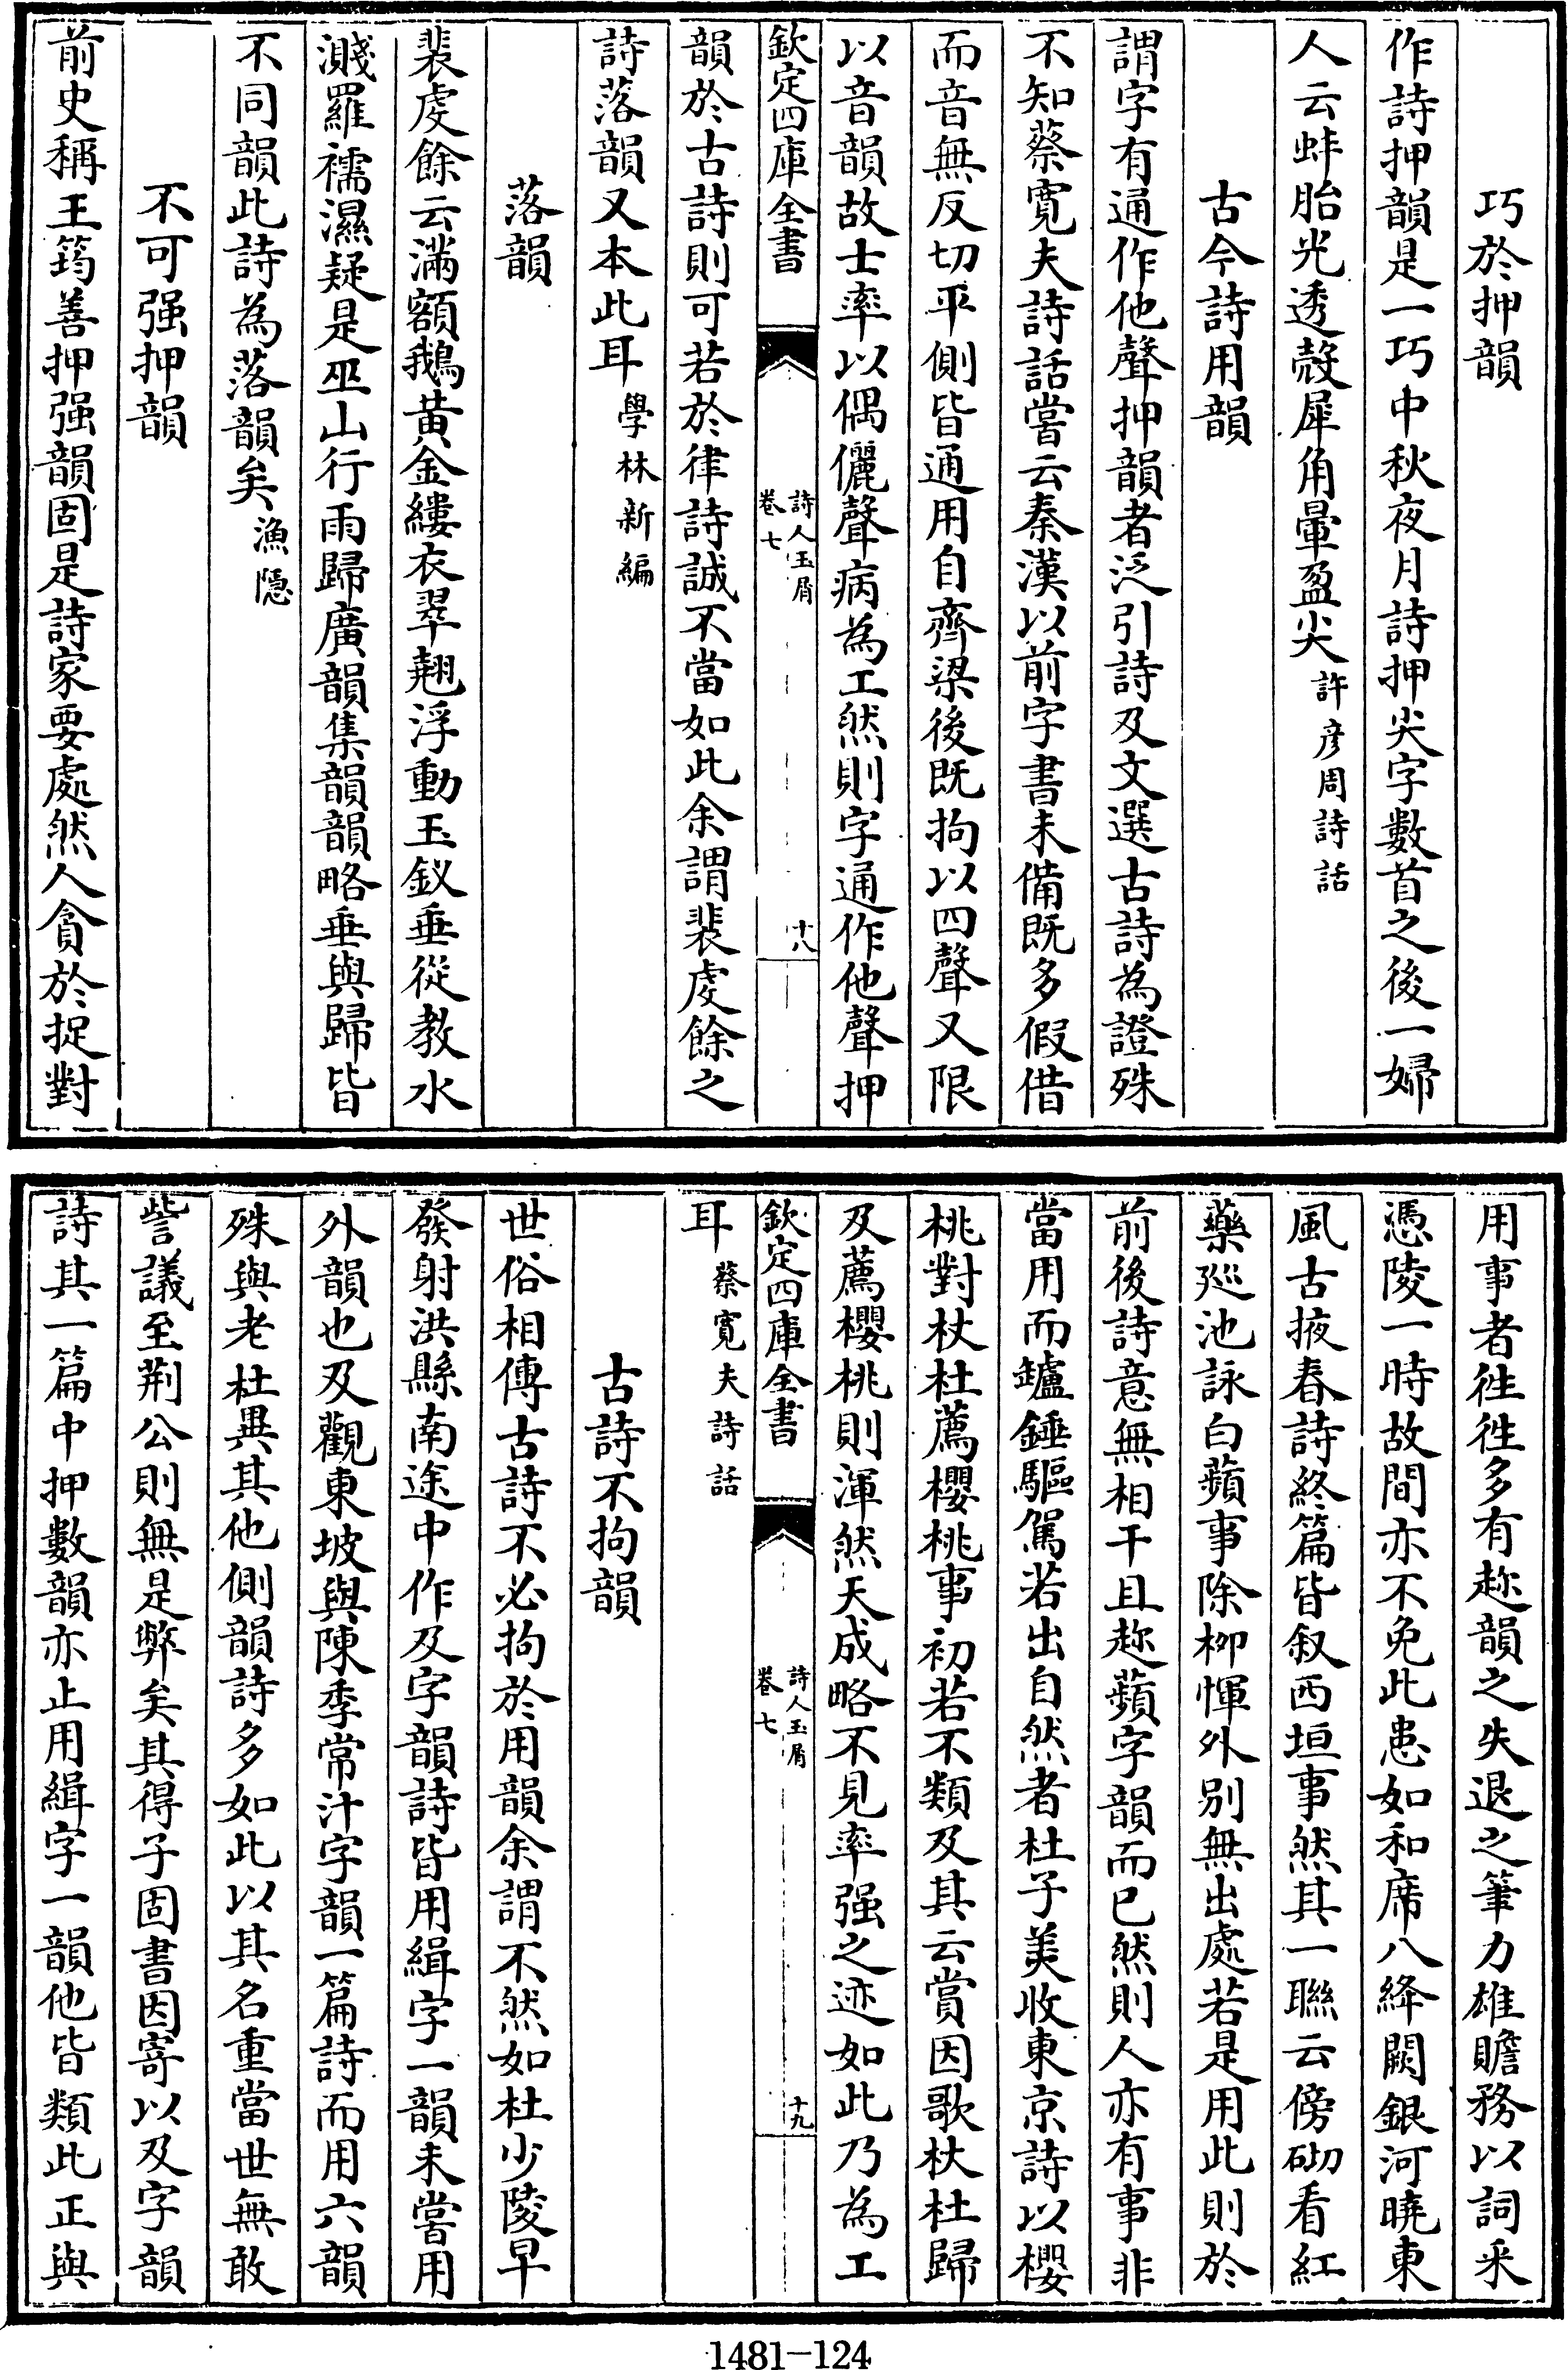 巧於押韻
作詩押韻是一巧中秋夜月詩押尖字數首之後一婦
人云蚌胎光透殻犀角暈盈尖許彦周詩話
古今詩用韻
謂字有通作他聲押韻者泛引詩及文選古詩為證殊
不知蔡寬夫詩話嘗云秦漢以前字書未備既多假借
而音無反切平側皆通用自齊梁後既拘以四聲又限
以音韻故士率以偶儷聲病為工然則字通作他聲押
欽定四庫全書
詩人玉屑
卷七
十八
韻於古詩則可若於律詩誠不當如此余謂裴䖍餘之
詩落韻又本此耳學林新編
落韻
裴䖍餘云滿額鵝黃金縷衣翠翹浮動玉釵垂從教水
濺羅襦濕疑是巫山行雨歸廣韻集韻韻略垂與歸皆
不同韻此詩為落韻矣漁隱
不可强押韻
前史稱王筠善押强韻固是詩家要處然人貪於捉對
用事者徃徃多有趂韻之失退之筆力雄贍務以詞采
憑陵一時故間亦不免此患如和席八絳闕銀河曉東
風古掖春詩終篇皆叙西垣事然其一聯云傍砌看紅
藥廵池詠白蘋事除柳惲外别無出處若是用此則於
前後詩意無相干且趂蘋字韻而已然則人亦有事非
當用而鑪錘驅駕若出自然者杜子美收東京詩以櫻
桃對杕杜薦櫻桃事初若不類及其云賞因歌杕杜歸
及薦櫻桃則渾然天成略不見率强之迹如此乃為工
欽定四庫全書
詩人玉屑
卷七
十九
耳蔡寬夫詩話
古詩不拘韻
世俗相傳古詩不必拘於用韻余謂不然如杜少陵早
發射洪縣南途中作及字韻詩皆用緝字一韻未嘗用
外韻也及觀東坡與陳季常汁字韻一篇詩而用六韻
殊與老杜異其他側韻詩多如此以其名重當世無敢
訾議至荆公則無是弊矣其得子固書因寄以及字韻
詩其一篇中押數韻亦止用緝字一韻他皆類此正與
1481-124